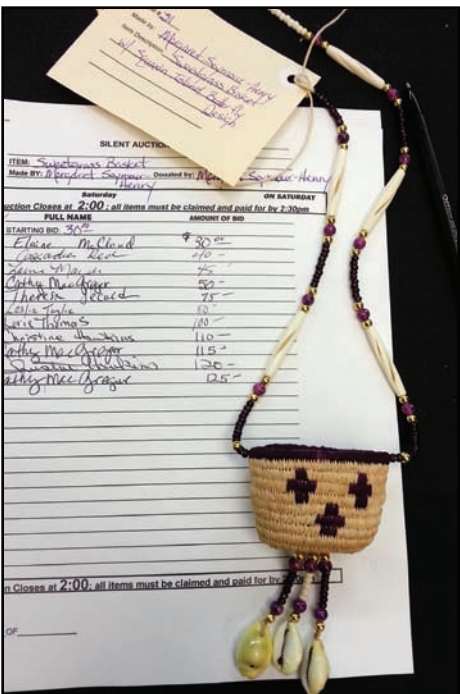 # 31
Made by:
Margaret Seymour-Henry
Item Description:
Sweetgrass Basket
w/ Squaxin Island Butterfly
Design
SILENT AUCTIO
ITEM: Sweetgrass Basket
Made BY: Margaret Seymour-Henry Donated by: Mar Seymour-Henry
Saturday ON SATURDAY
uction Closes at 2:00; all items must be claimed and paid for by 2:30pm
FULL NAME AMOUNT OF BID
STARTING BID: 30.00
Elaine McCloud $30.00
Cascadia Red 40-
45-
Cathy MacGregor 50-
Theresa 75-
Leslie 80-
Loris Thomas 100-
Christine Hawkins 110-
Cathy MacGregor 115-
Hawkins 120-
Cathy MacGregor 125-
n Closes at 2:00; all items must be claimed and paid for by
OF